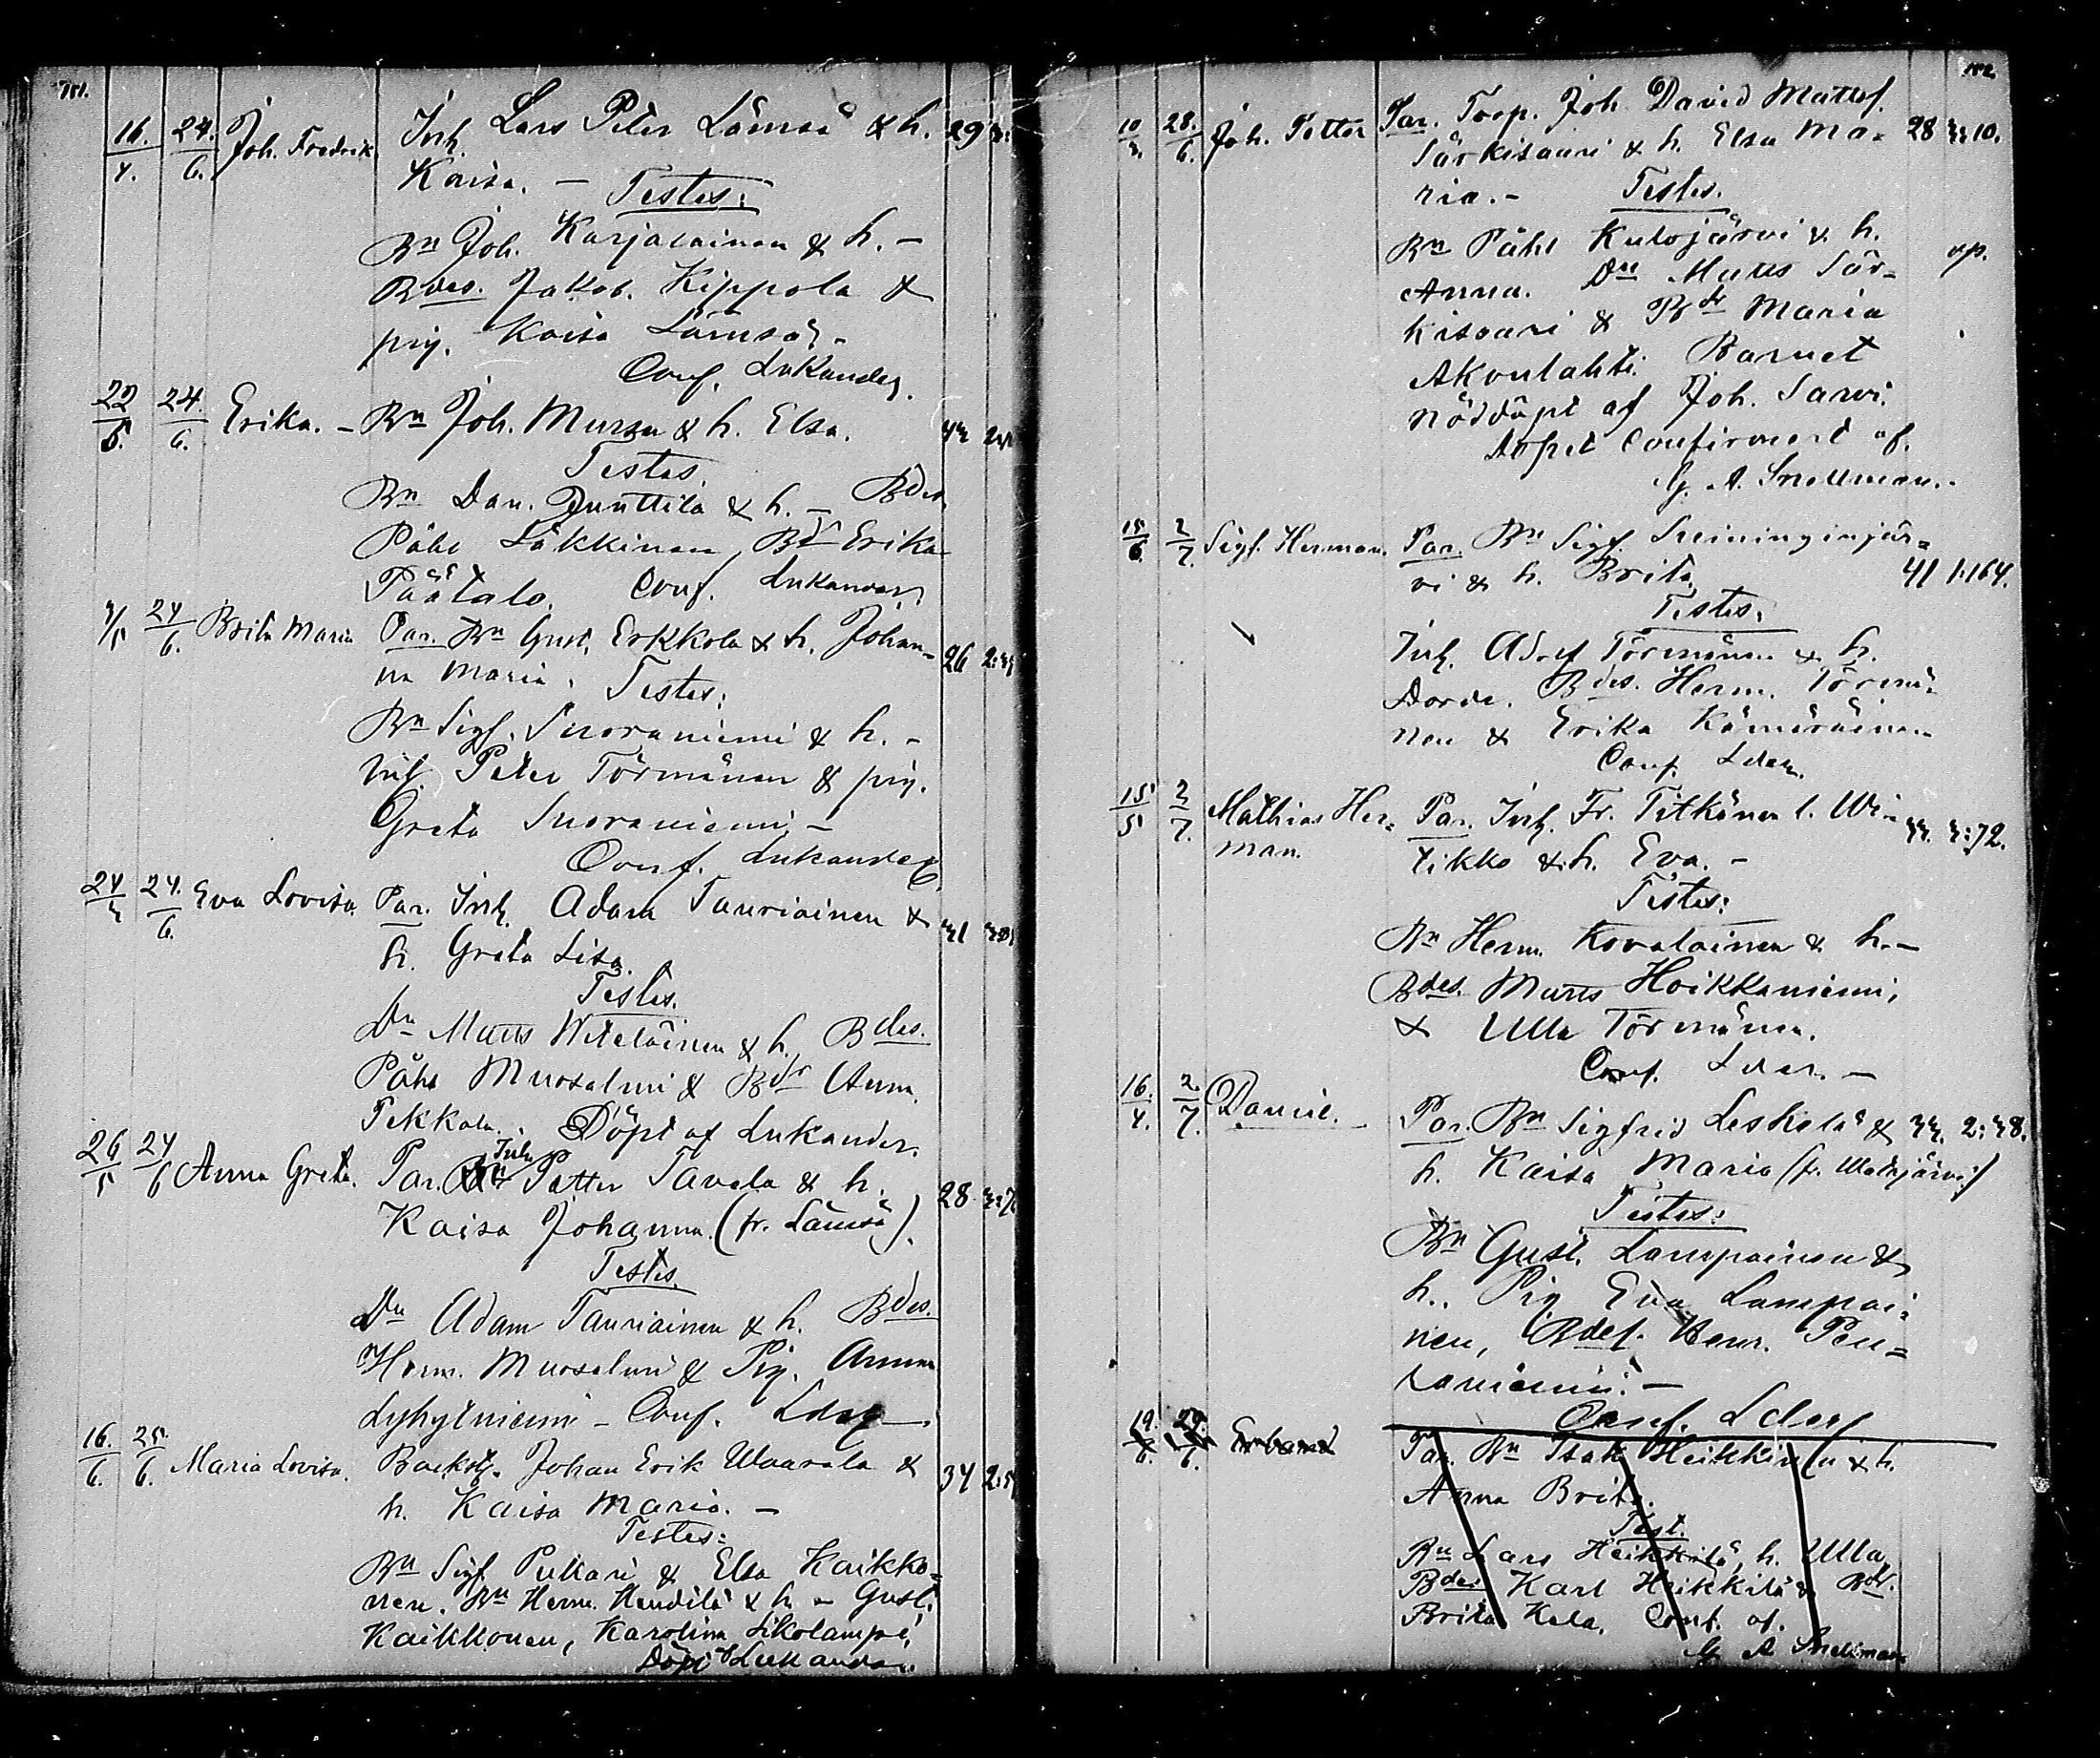 151.
16. 24. Joh. Fredrik. Inh. Lars Peter Lämsä & h. 29
4. 6.
Kaisa. — Testes:
Bn Joh. Karjalainen & h. —
Bdes. Jakob. Kippola &
pig. Kaisa Lämsä. —
Conf. Lukander.
22 24. Erika. — Bn Joh. Mursu & h. Elsa.
5. 6.
Testes.
Bn Dan. Junttila & h. — Bdes.
Påhl Läkkinen, Bdr Erika
Päätalo. Conf. Lukander.
24 Brita Maria Par. Bn Gust. Erkkola & h. Johan- 26
6.
na Maria. Testes:
Bn Sigf. Suoraniemi & h. —
Inh. Peter Törmänen & pig.
Greta Suoraniemi. —
Conf. Lukander
24 24. Eva Lovisa. Par. Inh. Adam Tauriainen &
6.
h. Greta Lisa.
Testes.
Dn Matts Witeläinen & h. Bdes.
Påhl Mursalmi & Bdr Anna
Pekkala. Döpt af Lukander.
26 24 Anna Greta. Par. Inh. Petter Tavela & h. 28
5 6
Kaisa Johanna. (fr. Lämsä).
Testes.
Dn Adam Tauriainen & h. Bdes.
Herm. Mursalmi & Pig. Anna
Lyhytniemi — Conf. Lder
16. 25. Maria Lovisa. Backstg. Johan Erik Waarala & 34
6. 6.
h. Kaisa Maria. —
Testes:
Bn Sigf. Pukari & Elsa Kaikko-
nen. Bn Herm. Hendilä & h — Gust.
Kaikkonen, Karolina Sikolampi,
Döpt Lukander.
152.
10 28. Joh. Petter Par. Torp. Joh. David Mattsf. 28 3:10.
3. 6.
Särkisaari & h. Elsa Ma-
ria. — Testes.
Bn Påhl Kulojärvi & h.
Anna. Dn Matts Sär-
kisaari & Bdr Maria
Akonlahti. Barnet
nöddöpt af Joh. Sarvi.
Dopet Confirmerat af.
G. A. Snellman.
15 2 Sigf. Herman. Par. Bn Sigf. Sveininginjär-
6. 7.
vi & h. Brita. 41 1:164.
Testes:
Inh. Adolf Törmänen & h.
Dorde. Bdes. Herm. Törmä-
nen & Erika Kämäräinen
Conf. Lder.
15 2 Mathias Her- Par. Inh. Fr. Pitkänen l. Wi- 33. 3:72.
5 7.
man. tikko & h. Eva. —
Testes:
Bn Herm. Kovalainen & h. —
Bdes. Matts Hoikkaniemi,
& Ulla Törmänen.
Conf. Lder. —
16. 2. Daniel. — Par. Bn Sigfrid Leskelä & 33. 2:38.
4. 7.
h. Kaisa Maria (fr. Wetojärvi)
Testes:
Bn Gust. Lampainen &
h. Pig Eva Lampai-
nen, Bdes. Henr. Pen-
taniemi. —
Conf. Lder
19. 29.
6. 6.
Par. Bn Isak Heikkinen & h.
Anna Brita.
Test.
Bn Lars Heikkilä, h. Ulla,
Bdes Karl Heikkilä & Bdr.
Brita Kela. Conf. af.
G A Snellman